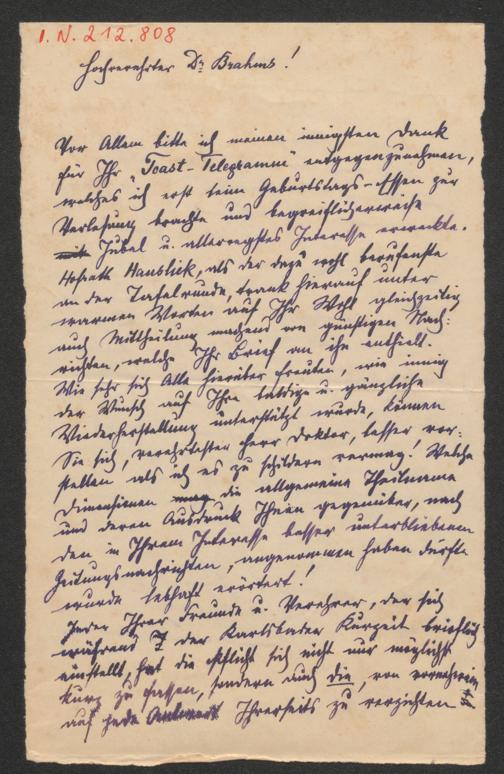 I.N. 212.808
Hochverehrter Dr. Brahms!
Vor Allem bitte ich meinen innigsten Dank
für Ihr „Toast-Telegramm“ entgegenzunehmen,
welches ich erst beim Geburtstags-Essen zur
Verlesung brachte und begreiflicherweise
Jubel u. allerregstes Interesse erweckte.
Hofrath Hanslick, als der dazu wohl berufenste
an der Tafelrunde, trank hierauf unter
warmen Worten auf Ihr Wohl gleichzeitig
auch Mittheilung machend von günstigen Nach-
richten, welche Ihr Brief an ihn enthielt.
Wie sehr sich Alle hierüber freuten, wie innig
der Wunsch auf Ihre baldige u. gänzliche
Wiederherstellung unterstützt wurde, können
Sie sich, verehrtester Herr Doktor, besser vor-
stellen als ich es zu schildern vermag! Welche
Dimensionen die allgemeine Theilname
und deren Ausdruck Ihnen gegenüber, nach
den in Ihrem Interesse besser unterbliebenen
Zeitungsnachrichten, angenommen haben dürfte
wurde lebhaft erörtert!
Jeder Ihrer Freunde u. Verehrer, der sich
während der Karlsbader Kurzeit brieflich
einstellt, hat die Pflicht sich nicht nur möglichst
kurz zu fassen, sondern auch die, von vorneherein
auf jede Antwort Ihrerseits zu verzichten